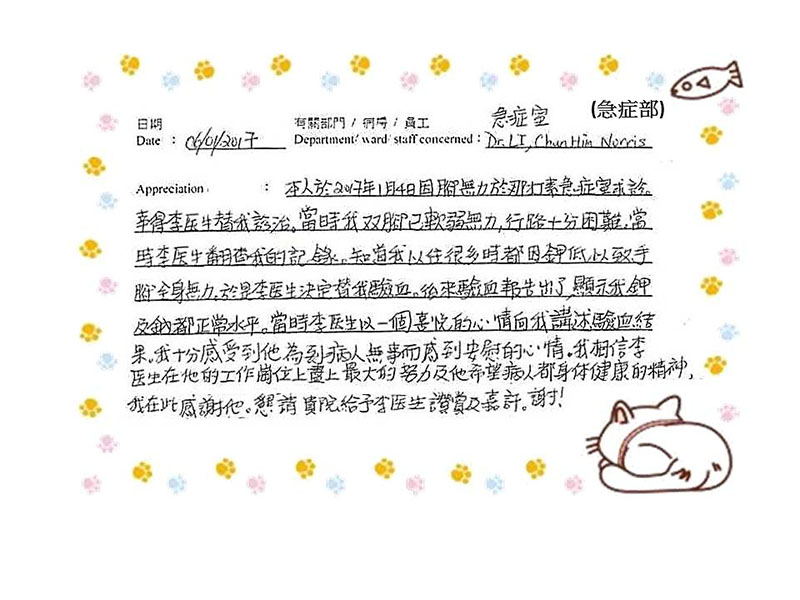 (急症部)
急症室
日期 有關部門 / 病房 / 員工
Date : 06/01/2017 Department/ ward/ staff concerned : Dr. LI, Chun Him Norris
Appreciation : 本人於2017年1月4日因腳無力於那打素急症室求診
幸得李医生替我診治。當時我双腳已軟弱無力,行路十分困難,當
時李医生翻查我的記錄。知道我以往很多時都因鉀低以致手
腳全身無力。於是李医生決定替我驗血。後來驗血報告出了,顯示我鉀
及鈉都正常水平。當時李医生以一個喜悅的心情向我講述驗血結
果。我十分感受到他為到病人無事而感到安慰的心情。我相信李
医生在他的工作崗位上盡上最大的努力及他希望病人都身体健康的精神,
我在此感謝他。懇請貴院給予李医生讚賞及嘉許。謝!